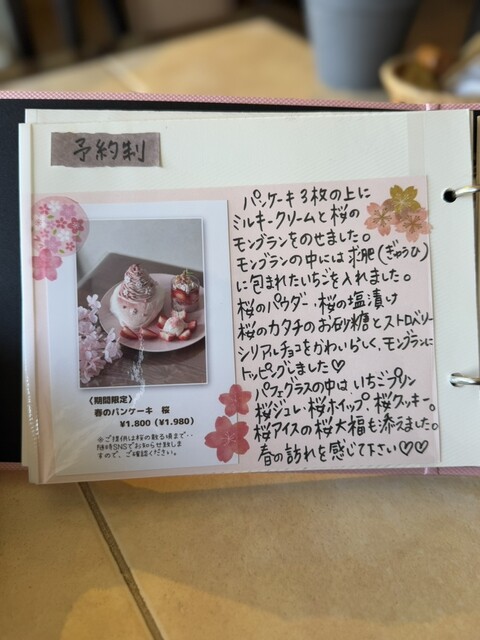 予約制
〈期間限定〉
春のパンケーキ 桜
¥1.800 (¥1.980)
※ご提供は桜の散る頃まで‥
随時SNSでお知らせ致しま
すので、ご確認ください。
パンケーキ3枚の上に
ミルキークリームと桜の
モンブランをのせました。
モンブランの中には求肥(ぎゅうひ)
に包まれたいちごを入れました。
桜のパウダー・桜の塩漬け
桜のカタチのお砂糖とストロベリー
シリアルチョコをかわいらしく、モンブランに
トッピングしました♡
パフェグラスの中はいちごプリン
桜ジュレ・桜ホイップ、桜クッキー。
桜アイスの桜大福も添えました。
春の訪れを感じて下さい♡♡